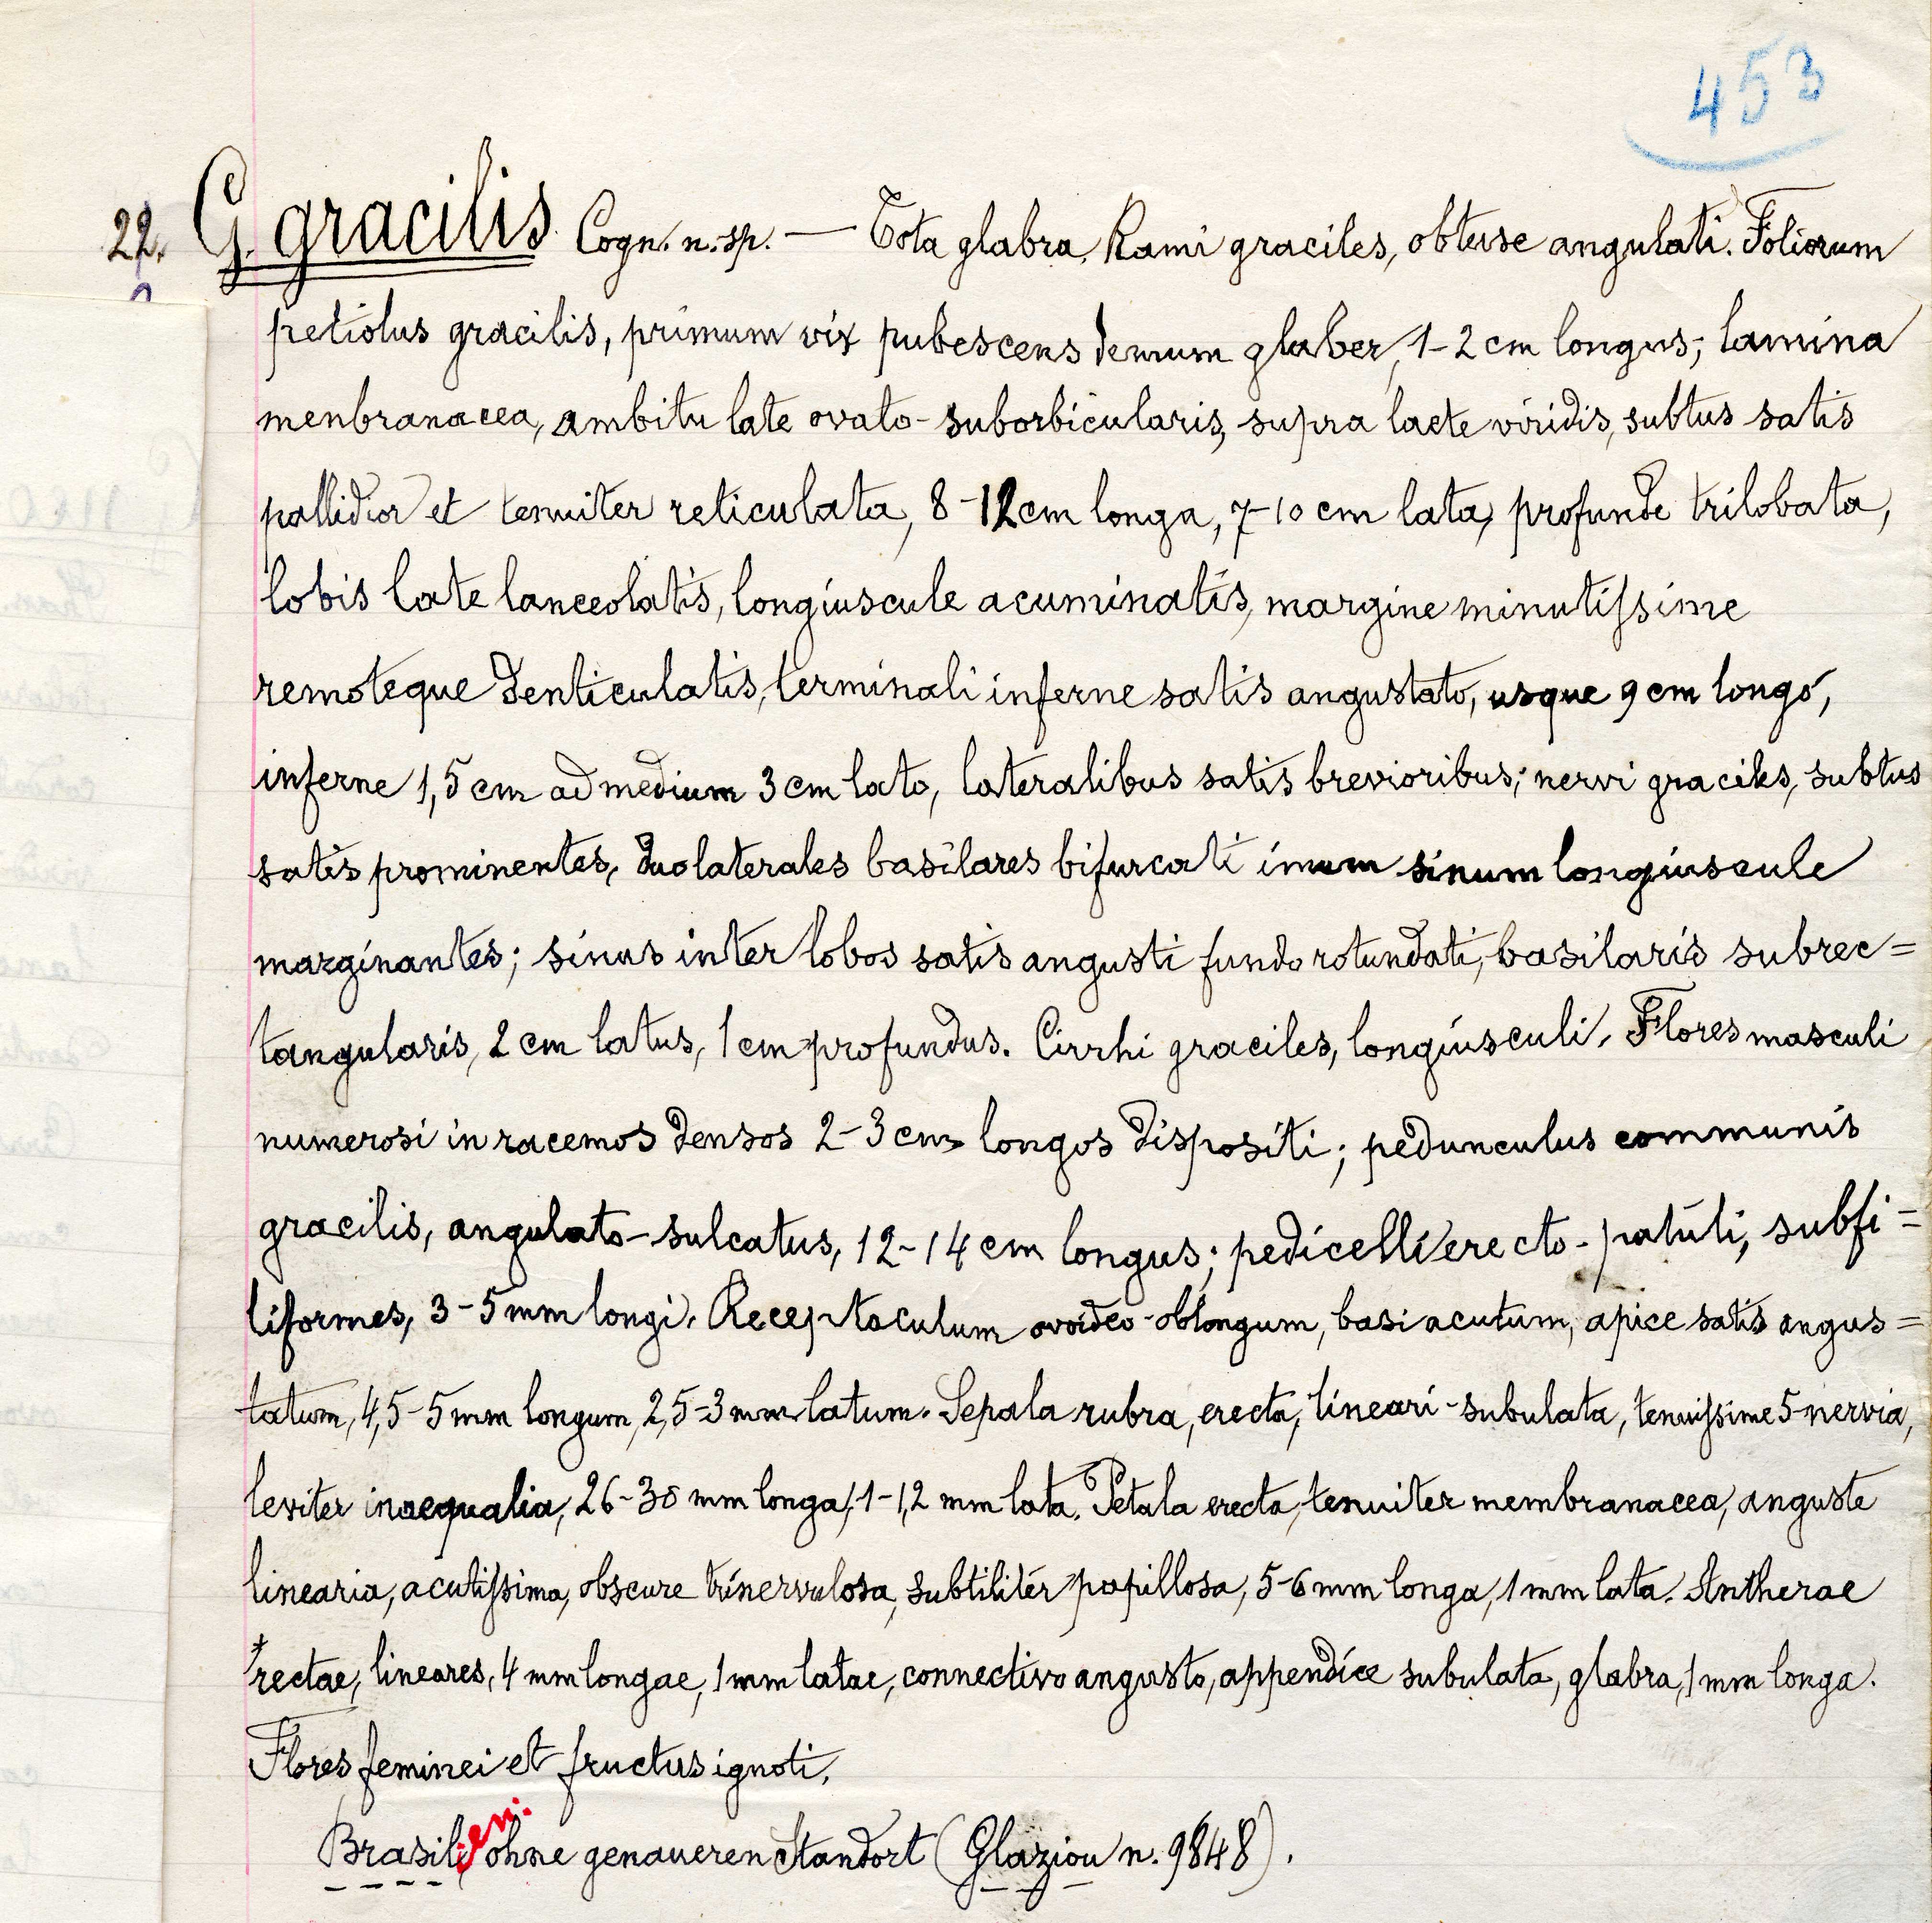 453
22. G. gracilis Cogn. n. sp. — Tota glabra. Rami graciles, obtuse angulati. Foliorum
petiolus gracilis, primum vix pubescens demum glaber, 1-2 cm longus; lamina
menbranacea, ambitu late ovato-suborbicularis, supra laete viridis, subtus satis
pallidior et tenuiter reticulata, 8-12 cm longa, 7-10 cm lata, profunde trilobata,
lobis late lanceolatis, longiuscule acuminatis, margine minutissime
remoteque denticulatis, terminali inferne satis angustato, usque 9 cm longo,
inferne 1,5 cm ad medium 3 cm lato, lateralibus satis brevioribus; nervi graciles, subtus
satis prominentes, duo laterales basilares bifurcati imum sinum longiuscule
marginantes; sinus inter lobos satis angusti fundo rotundati, basilaris subrec=
tangularis, 2 cm latus, 1 cm profundus. Cirrhi graciles, longiusculi. Flores masculi
numerosi in racemos densos 2-3 cm longos dispositi; pedunculus communis
gracilis, angulato-sulcatus, 12-14 cm longus; pedicelli erecto-patuli, subfi=
liformes, 3-5 mm longi. Receptaculum ovoideo-oblongum, basi acutum, apice satis angus=
tatum, 4,5-5 mm longum, 2,5-3 mm latum. Sepala rubra, erecta, lineari-subulata, tenuissime 5-nervia,
leviter inaequalia, 26-30 mm longa, 1-1,2 mm lata. Petala erecta, tenuiter membranacea, anguste
linearia, acutissima, obscure trinervulosa, subtiliter papillosa, 5-6 mm longa, 1 mm lata. Antherae
rectae, lineares, 4 mm longae, 1 mm latae, connectivo angusto, appendice subulata, glabra, 1 mm longa.
Flores feminei et fructus ignoti.
Brasilien: ohne genaueren Standort (Glaziou n. 9848).